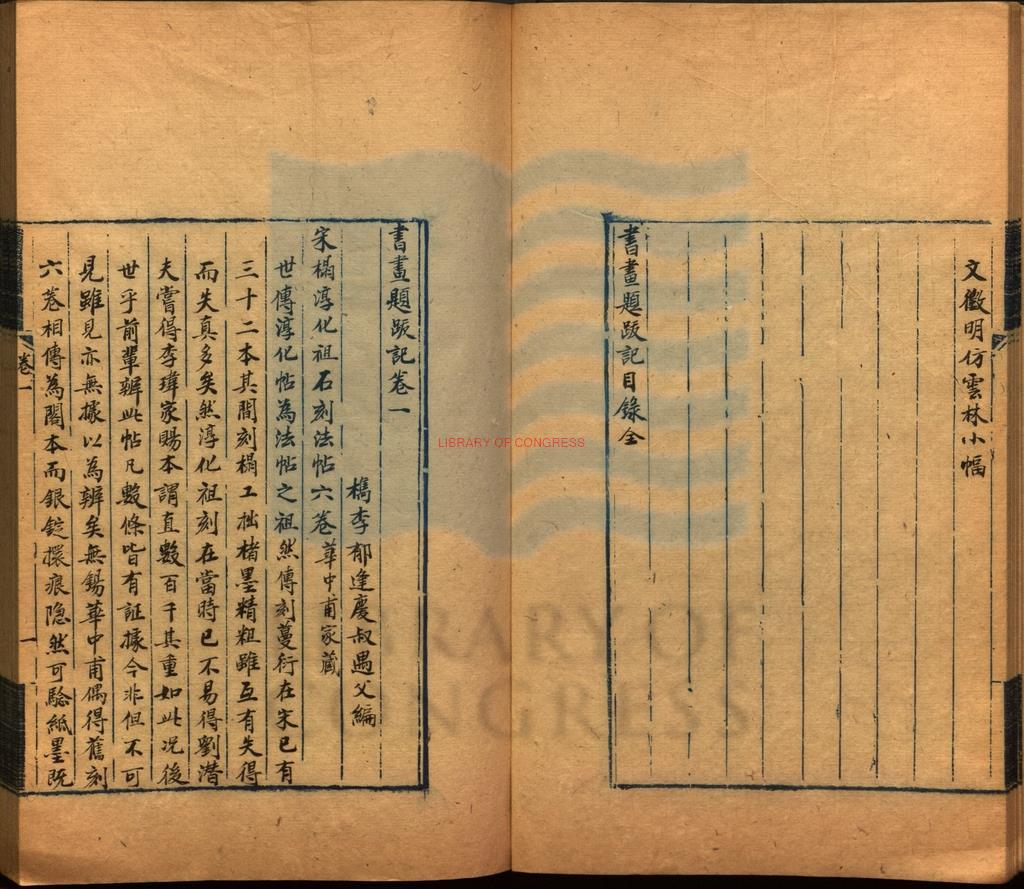 文徵明仿雲林小幅
書畫題跋記目錄全
書畫題跋記卷一
檇李郁逢慶叔遇父編
宋榻淳化祖石刻法帖六卷華中甫家藏
世傳淳化帖為法帖之祖然傳刻蔓衍在宋已有
三十二本其間刻榻工拙楮墨精粗雖互有失得
而失真多矣然淳化祖刻在當時已不易得劉潛
夫嘗得李瑋家賜本謂直數百千其重如此况後
世乎前輩辨此帖凡數條皆有証據今非但不可
見雖見亦無據以為辨矣無錫華中甫偶得舊刻
六卷相傳為閣本而銀錠攔痕隐然可驗紙墨既
卷一
一
LIBRARY OF CONGRESS
LIBRARY OF
CONGRESS